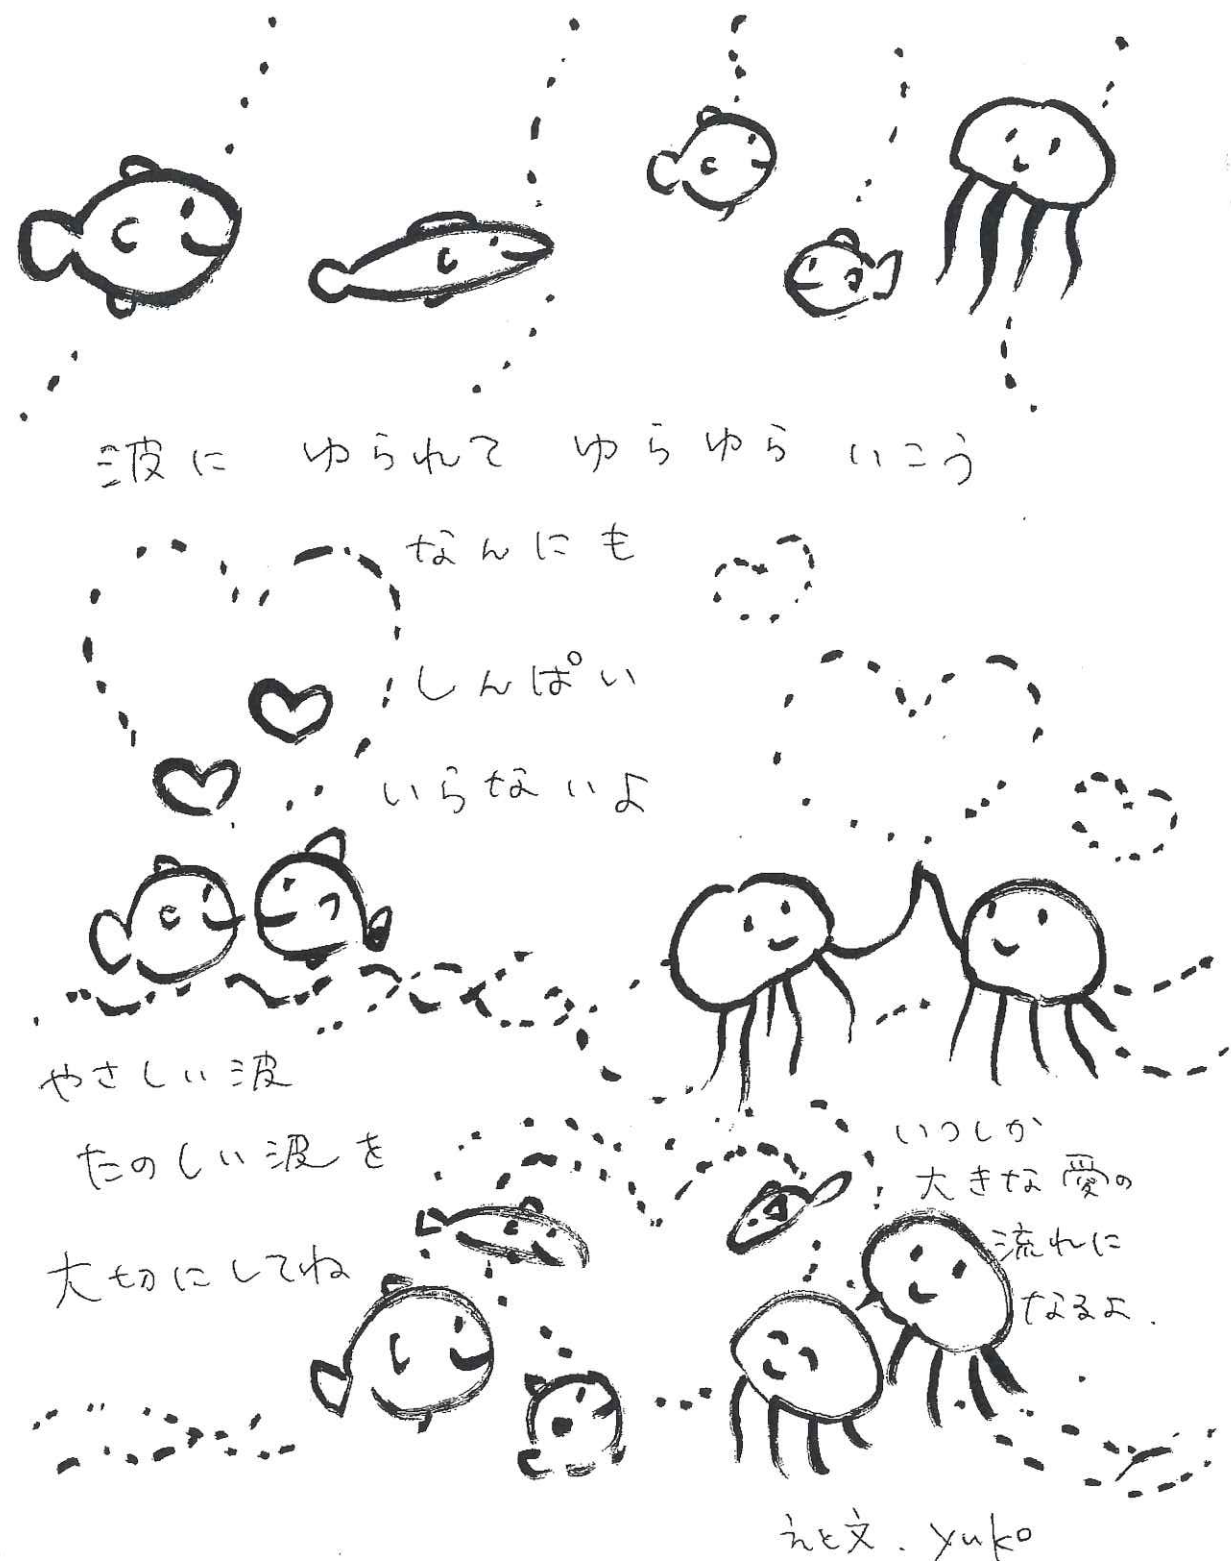 波に ゆられて ゆらゆら いこう
なんにも
しんぱい
いらないよ
やさしい波
たのしい波を
大切にしてね
いつしか
大きな愛の
流れに
なるよ.
えと文. yuko